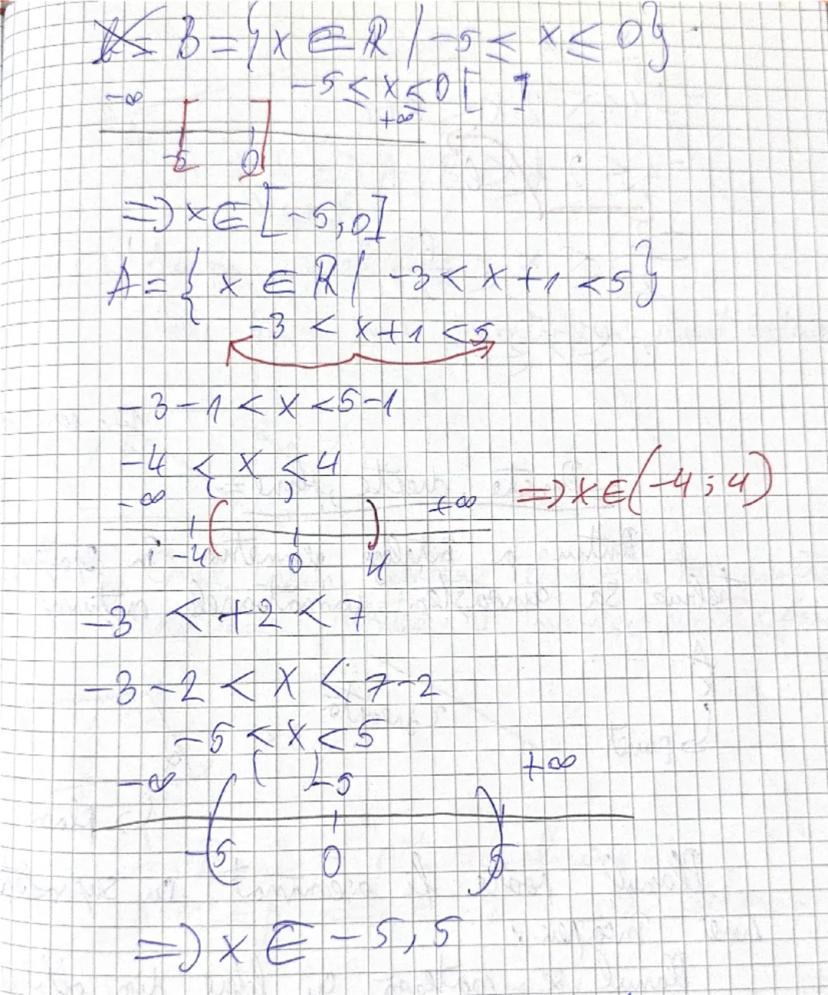 B = { x ∈ ℝ / -5 ≤ x ≤ 0}
-5 ≤ x ≤ 0 [ ]
-∞ +∞
-5 0
=> x ∈ [-5,0]
A = { x ∈ ℝ / -3 < x+1 < 5}
-3 < x+1 < 5
-3-1 < x < 5-1
-4 < x < 4
( )
=> x ∈ (-4 ; 4)
-∞ +∞
-4 0 4
-3 < +2 < 7
-3-2 < x < 7-2
-5 < x < 5
-∞ ( ) -5 +∞
-5 0 5
=> x ∈ -5, 5